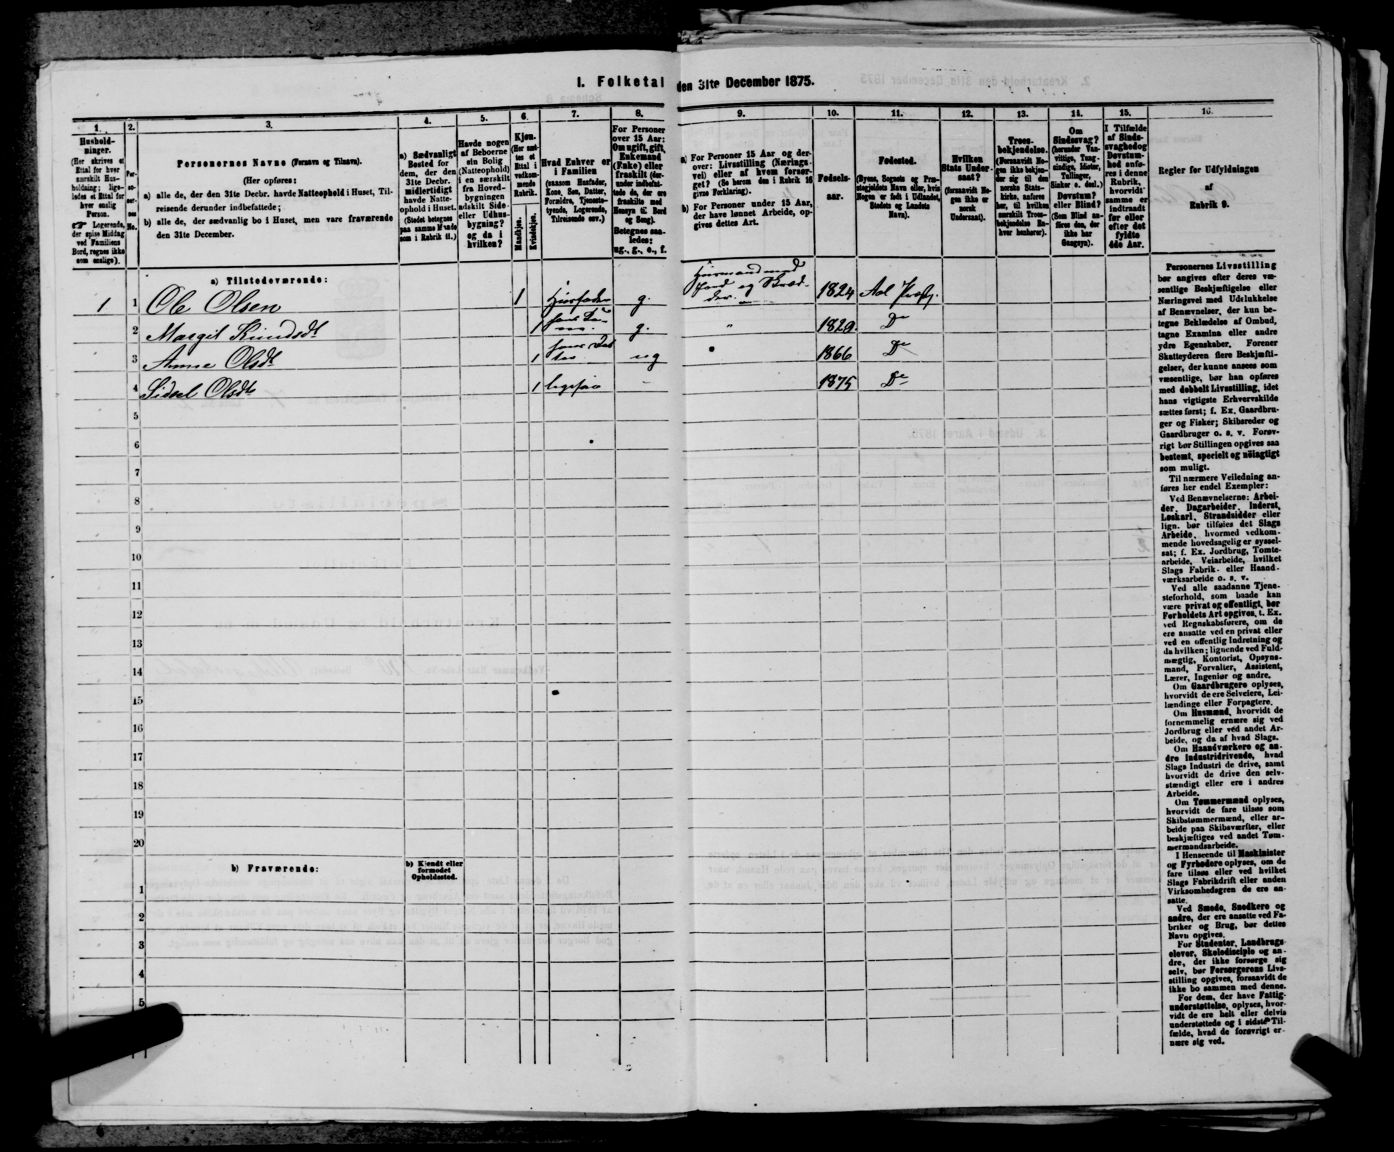 I. Folketal den 31te December 1875.
1.
2.
3.
4.
5.
6.
7.
8.
9.
10.
11.
12.
13.
14.
15.
16.
Hushold-
ninger.
(Her skrives et
Ettal for hver
særskilt Hus-
holdning; lige-
ledes et Ettal for
hver enslig
Person.
☞ Logerende,
der spise Middag
ved Familiens
Bord, regnes ikke
som enslige).
Personernes Navne (Fornavn og Tilnavn).
(Her opføres:
a) alle de, der den 31te Decbr. havde Natteophold i Huset, Til-
reisende derunder indbefattede;
b) alle de, der sædvanlig bo i Huset, men vare fraværende
den 31te December.
a) Sædvanligt
Bosted for
dem, der den
31te Decbr.
midlertidigt
havde Natte-
ophold i Huset.
(Stedet betegnes
paa samme Maade
som i Rubrik 11.)
Havde nogen
af Beboerne
sin Bolig
(Natteophold)
i en særskilt
fra Hoved-
bygningen
adskilt Side-
eller Udhus-
bygning?
og da i
hvilken?
Kjøn.
(Her sæt-
tes et
Ettal i
vedkom-
mende
Rubrik.
Mandkjøn.
Kvindekjøn.
Hvad Enhver er
i Familien
(saasom Husfader,
Kone, Søn, Datter,
Forældre, Tjeneste-
tyende, Logerende,
Tilreisende osv.)
For Personer
over 15 Aar:
Om ugift, gift,
Enkemand
(Enke) eller
fraskilt
Betegnes saa-
ledes:
ug., g., e., f.
a) For Personer 15 Aar og der-
over: Livsstilling (Nærings-
vei) eller af hvem forsør-
get? (Se herom den i Rubrik 16
givne Forklaring).
b) For Personer under 15 Aar,
der have lønnet Arbeide, op-
gives dettes Art.
Fødsels-
aar.
Fødested.
(Byens, Sognets og Præ-
stegjeldets Navn eller, hvis
Nogen er født i Udlandet,
Stedets og Landets
Navn).
Hvilken
Stats Under-
saat?
(forsaavidt No-
gen ikke er
norsk
Undersaat).
Troes-
bekjendelse.
(Forsaavidt No-
gen ikke bekjen-
der sig til den
norske Stats-
kirke, anføres
her, til hvilken
særskilt Troes-
bekjendelse En-
hver henhører).
Om
Sindssvag?
(herunder Van-
vittige, Tung-
sindige, Idioter,
Tullinger,
Sinker o. desl.)
Døvstum?
eller Blind?
(Som Blind an-
føres den, der
ikke har
Gangsyn).
I Tilfælde
af Sinds-
svaghed og
Døvstum-
hed anfø-
res i denne
Rubrik,
hvorvidt
samme er
indtraadt
før eller
efter det
fyldte
4de Aar.
Regler for Udfyldningen
af
Rubrik 9.
a) Tilstedeværende:
1 1 Ole Olsen 1 Huusfader g. Huusmand med Jord og 1824 Aal
2 Margit Knudsdt 1 g. " 1829. Do
3 Anne Olsdt 1 ug 1866 Do
4 Sidsel Olsdt 1 ligesaa – 1875 Do
5
6
7
8
9
10
11
12
13
14
15
16
17
18
19
20
b) Fraværende:
b) Kjendt eller
formodet
Opholdssted.
1
2
3
4
5
Personernes Livsstilling
bør angives efter deres væ-
sentlige Beskjæftigelse eller
Næringsvei med Udelukkelse
af Benævnelser, der kun be-
tegne Beklædelse af Ombud,
tagne Examina eller andre
ydre Egenskaber. Forener
Skatteyderen flere Beskjæfti-
gelser, der kunne ansees som
væsentlige, bør han opføres
med dobbelt Livsstilling, idet
hans vigtigste Erhvervskilde
sættes først; f. Ex. Gaardbru-
ger og Fisker; Skibsreder og
Gaardbruger o. s. v. Forøv-
rigt bør Stillingen opgives saa
bestemt, specielt og nøiagtigt
som muligt.
Til nærmere Veiledning an-
føres her endel Exempler:
Ved Benævnelserne: Arbei-
der, Dagarbeider, Inderst,
Løskarl, Strandsidder eller
lign. bør tilføies det Slags
Arbeide, hvormed vedkom-
mende hovedsagelig er syssel-
sat; f. Ex. Jordbrug, Tomte-
arbeide, Veiarbeide, hvilket
Slags Fabrik- eller Haand-
værksarbeide o. s. v.
Ved alle saadanne Tjene-
steforhold, som baade kan
være privat og offentligt, bør
Forholdets Art opgives, t. Ex.
ved Regnskabsførere, om de
ere ansatte ved en privat eller
ved en offentlig Indretning og
da hvilken; lignende ved Fuld-
mægtig, Kontorist, Opsyns-
mand, Forvalter, Assistent,
Lærer, Ingeniør og andre.
Om Gaardbrugere oplyses,
hvorvidt de ere Selveiere, Lei-
lændinge eller Forpagtere.
Om Husmænd, hvorvidt de
fornemmelig ernære sig ved
Jordbrug eller ved andet Ar-
beide, og da af hvad Slags.
Om Haandværkere og an-
dre Industridrivende, hvad
Slags Industri de drive, samt
hvorvidt de drive den selv-
stændigt eller ere i andres
Arbeide.
Om Tømmermænd oplyses,
hvorvidt de fare tilsøs som
Skibstømmermænd, eller ar-
beide paa Skibsværfter, eller
beskjæftiges ved andet Tøm-
mermandsarbeide.
I Henseende til Maskinister
og Fyrbødere oplyses, om de
fare tilsøs eller ved hvilket
Slags Fabrikdrift eller anden
Virksomhedsgren de ere an-
satte.
Ved Smede, Snedkere og
andre, der ere ansatte ved Fa-
briker og Brug, bør dettes
Navn opgives.
For Studenter, Landbrugs-
elever, Skoledisciple og an-
dre, der ikke forsørge sig
selv, bør Forsørgerens Livs-
stilling opgives, forsaavidt de
ikke bo sammen med denne.
For dem, der have Fattig-
understøttelse, oplyses, hvor-
vidt de ere helt eller delvis
understøttede og i sidste Til-
fælde, hvad de forøvrigt er-
nære sig ved.